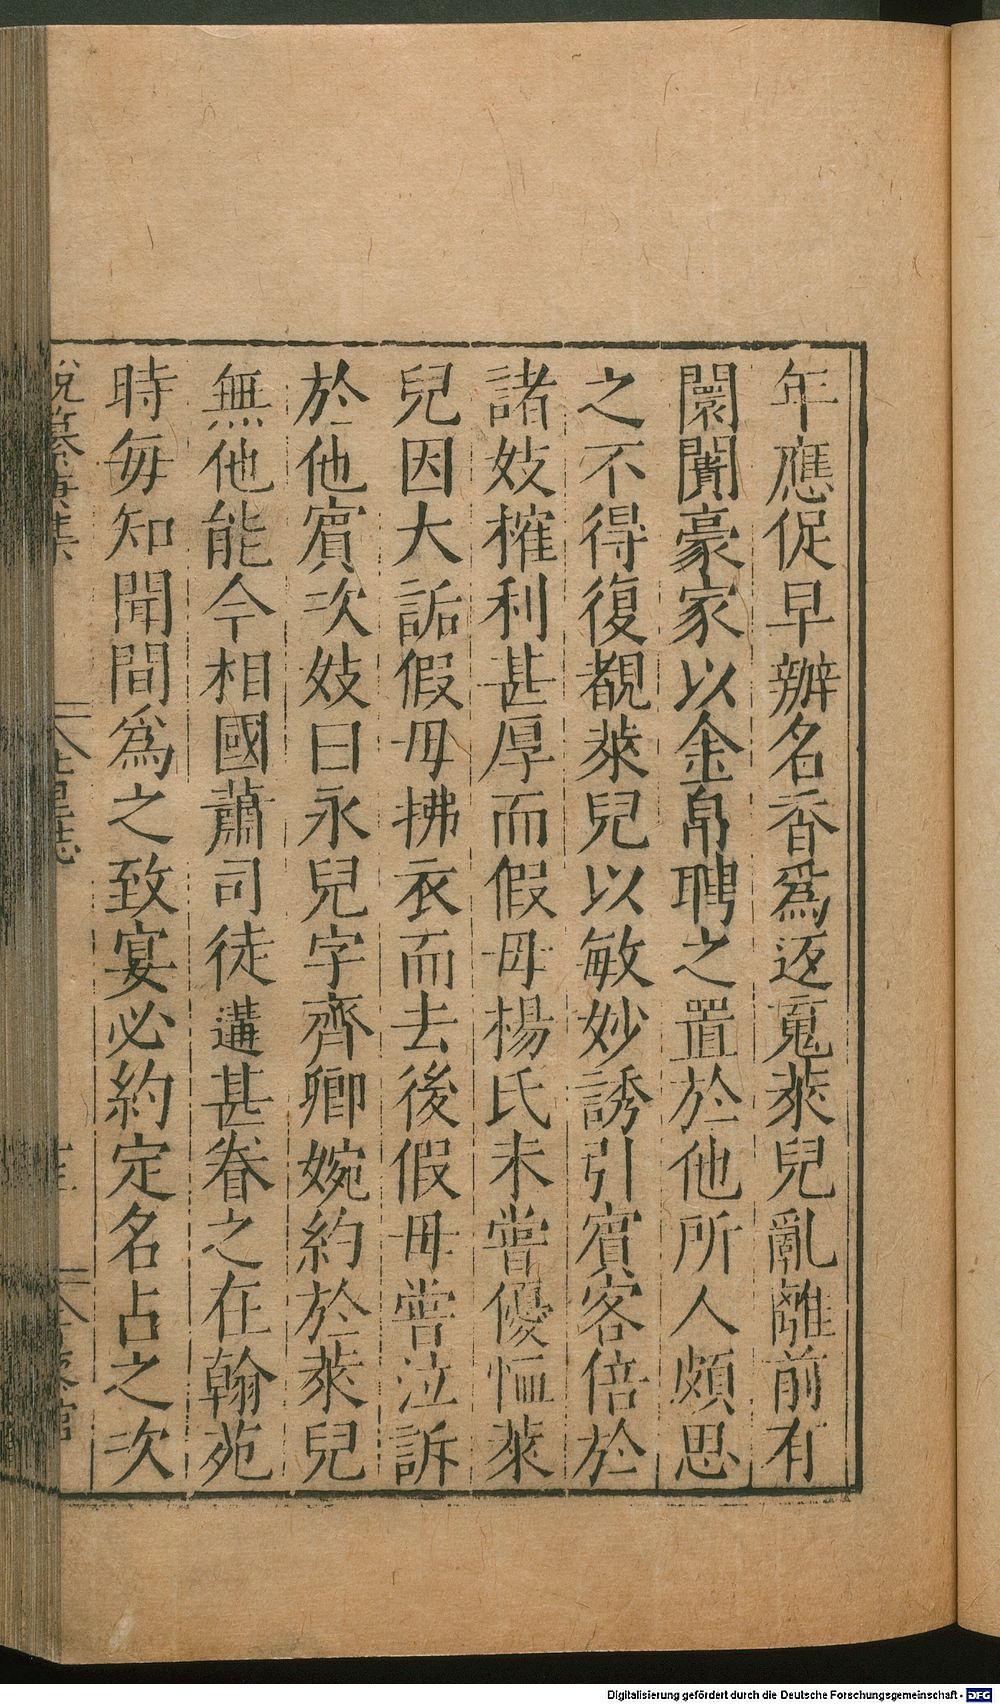 年應促早辦名香爲返䰟萊兒亂離前有
闤闠豪家以金帛聘之置於他所人頗思
之不得復覩萊兒以敏妙誘引賓客倍於
諸妓榷利甚厚而假母楊氏未嘗優恤萊
兒因大詬假母拂衣而去後假母嘗泣訴
於他賓次妓曰永兒字齊卿婉約於萊兒
無他能今相國蕭司徒遘甚眷之在翰苑
時每知聞間爲之致宴必約定名占之次
Digitalisierung gefördert durch die Deutsche Forschungsgemeinschaft - DFG